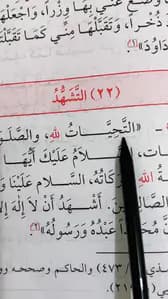 وَضَعْ عَنِّي بِهَا وِزْرًا، وَاجْعَلْهَا
ذُخْرًا، وَتَقَبَّلْهَا مِنِّي كَمَا تَقَبَّلْتَ
دَاوُدَ»
(٢٢) التَّشَهُّدُ
«التَّحِيَّاتُ للهِ، والصَّلَو
ـلَامُ عَلَيْكَ أَيُّهَا
اللهِ وَبَرَكَاتُهُ، السَّلام عَلَيْنَا وَ
الصَّالِحِينَ. أَشْهَدُ أَنْ لَا إِلَهَ إِلَّا
عَبْدُهُ وَرَسُولُهُ»
٤٧٣/ والحاكم وصححه وو